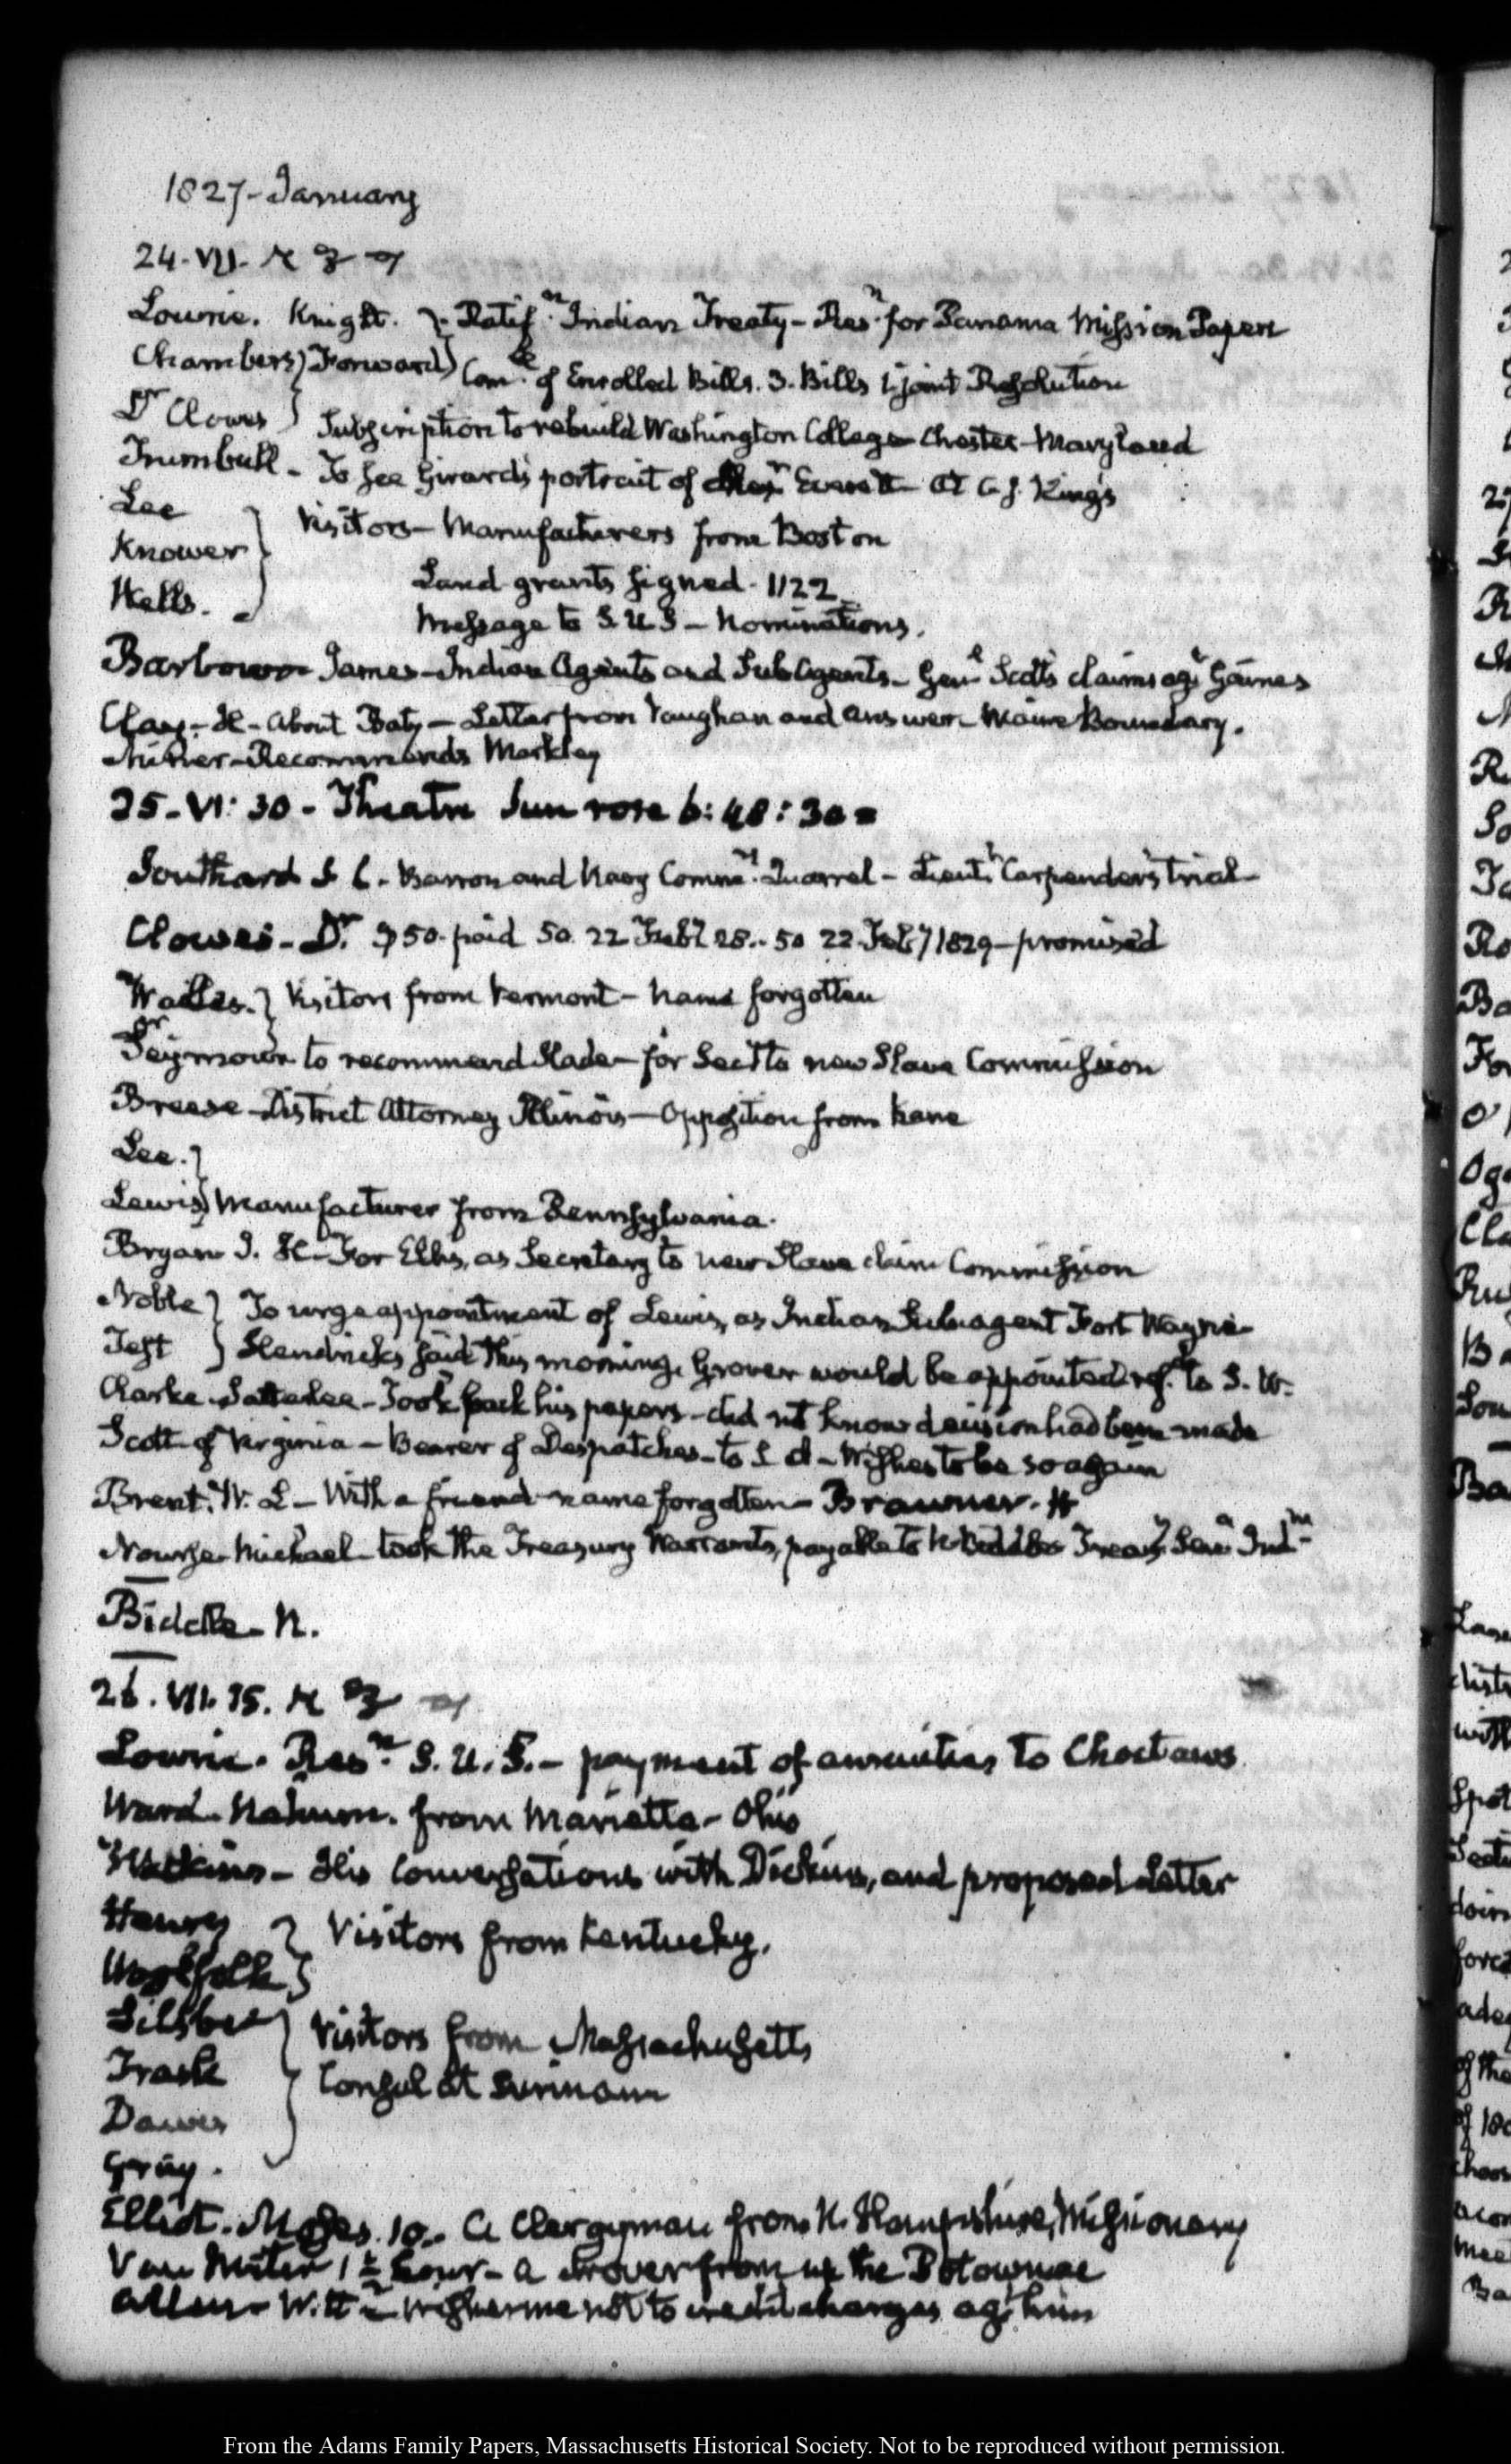 1827 - January
24. VII.
Lowrie. Knight. } - Ratifn. Indian Treaty - Resn. for Panama Mission Papers
Chambers } Forward } Comee. of Enrolled Bills. 3. Bills 1 joint Resolution
Dr Clowes } Subscription to rebuild Washington College Chester - Maryland
Trumbull - To see Girard's portrait of Everett at C. J. King's
Lee
Knower } Visitors - Manufacturers from Boston
Wells.
Land grants signed. 1122
Message to S. U. S - Nominations.
Barbour James - Indian Agents and Sub Agents - Genl Scott's claims agt Gaines
Clay - H - About Baty - Letter from Vaughan and answer - Maine Boundary.
Miner - Recommends Markley
25. VI: 30 - Theatre Sun rose 6: 48: 30
Southard S. L. - Barron and Navy Commrs. Quarrel - Lieutt. Carpender's trial
Clowes - Dr. $50. paid 50. 22 Feby 28. 50 22. Feby 1829 - promised
Wailes. } Visitors from Vermont - name forgotten
or
Seymour to recommend Slade - for Sect to new Slave Commission
Breese - District Attorney Illinois - Opposition from Kane
Lee. }
Lewis } Manufacturer from Pennsylvania.
Bryan J. H - For Ellis, as Secretary to new Slave claim Commission
Noble } To urge appointment of Lewis, as Indian Subagent Fort Wayne
Test } Hendricks said this morning, Grover would be appointed refd. to S. W.
Clarke. Satterlee - Took back his papers - did not know decision had been made
Scott of Virginia - Bearer of Despatches - to S. A - Wishes to be so again
Brent. W. L - With a friend name forgotten - Brawner. H
Nourse Michael - took the Treasury Warrants, payable to N. Biddle Treasy
Biddle - N.
26. VII. 15.
Lowrie. Resn. S. U. S. - payment of annuities to Choctaws
Ward. Nahum. from Marietta - Ohio
Watkins - His conversations with Dickins, and proposed Letter
Henry } Visitors from Kentucky.
Woolfolk }
Silsbee } Visitors from Massachusetts
Trask { Consul at Surinam
Dawes
Gray.
Elliot. Moses. 10. A Clergyman from N. Hampshire, Missionary
Van Meter 1 hour - a drover from up the Potowmac
Allen W. H wishes me not to credit charges agt him
From the Adams Family Papers, Massachusetts Historical Society. Not to be reproduced without permission.